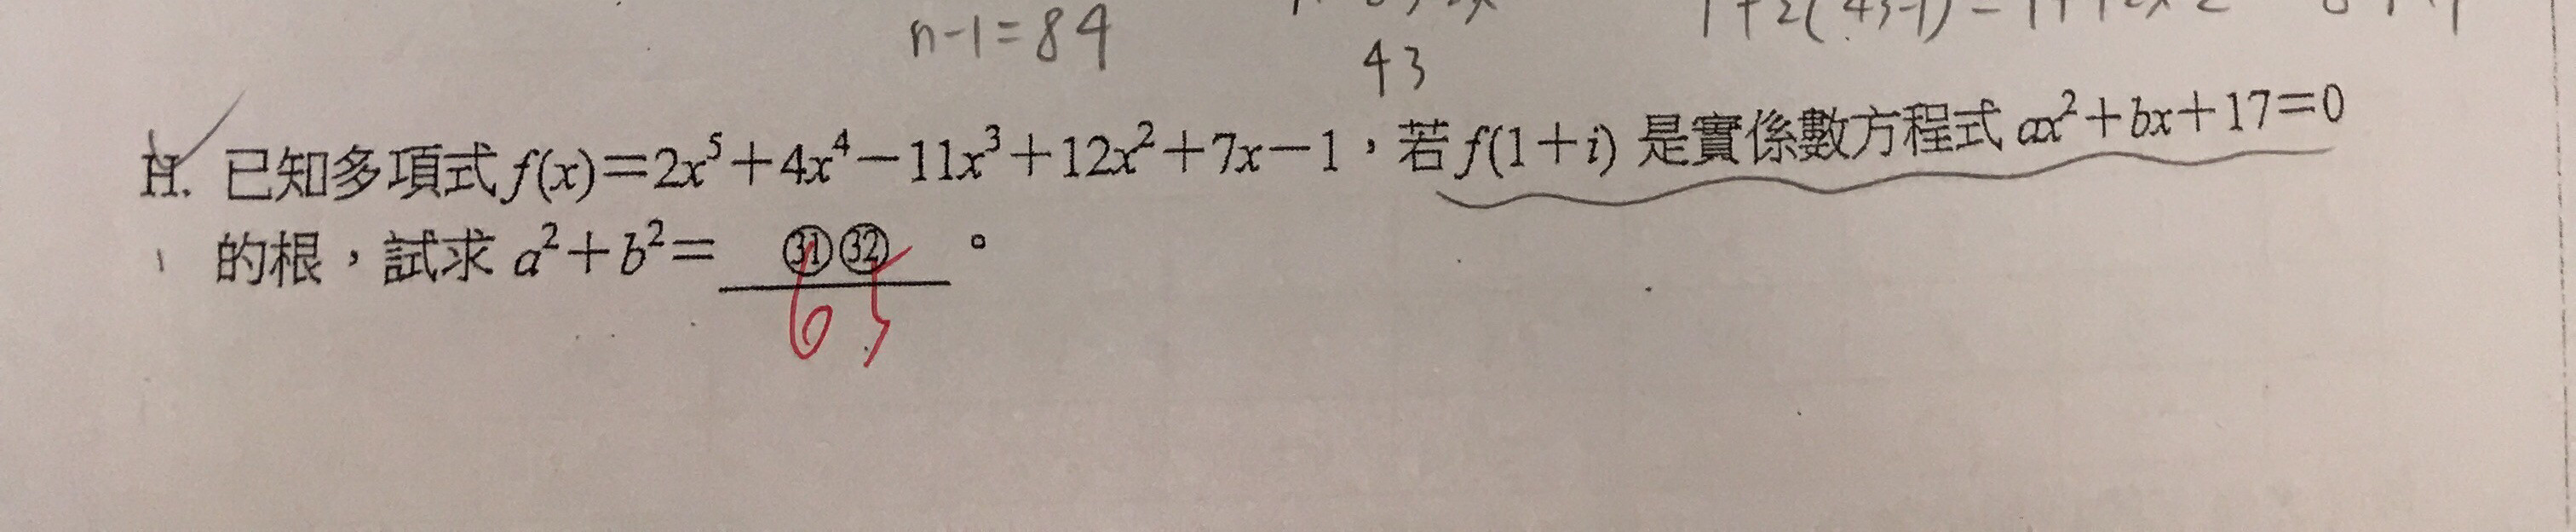 n-1=84
43
H. 已知多項式 f(x)=2x⁵+4x⁴-11x³+12x²+7x-1,若 f(1+i) 是實係數方程式 ax²+bx+17=0
的根,試求 a²+b²= ㉛㉜ 。
65